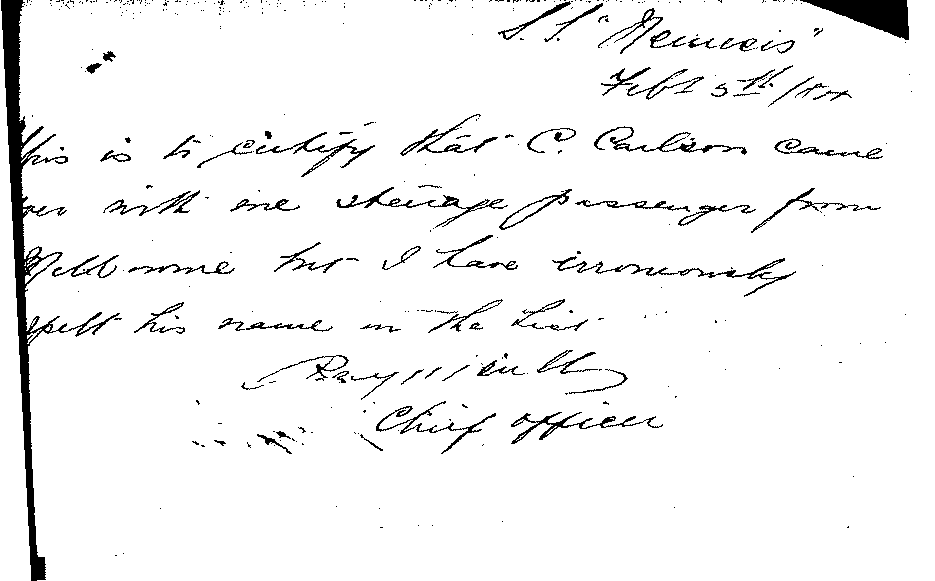 S.S. "Nemesis"
Feb 5th /
this is to certify that C. Carlson came
over with me steerage passenger from
Melbourne but I have irroneously
spelt his name in the List
Chief officer